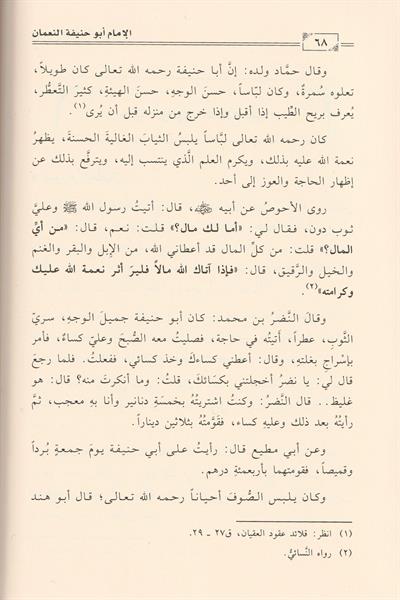 الإمام أبو حنيفة النعمان
٦٨
وقال حمّاد ولده: إنَّ أبا حنيفة رحمه الله تعالى كان طويلاً،
تعلوه سُمرةٌ، وكان لبّاساً، حسنَ الوجهِ، حسنَ الهيئةِ، كثيرَ التَّعطُّر،
يُعرف بريح الطِّيب إذا أقبل وإذا خرج من منزله قبل أن يُرى(١).
كان رحمه الله تعالى لبَّاساً يلبسُ الثيابَ الغاليةَ الحسنةَ، يظهرُ
نعمة الله عليه بذلك، ويكرم العلم الَّذي ينتسب إليه، ويترفَّع بذلك عن
إظهار الحاجة والعوز إلى أحد.
روى الأحوصُ عن أبيه رضي الله عنه، قال: أتيتُ رسول الله ﷺ وعليَّ
ثوب دون، فقال لي: «أما لك مال؟» قلت: نعم، قال: «من أيِّ
المال؟» قلت: من كلِّ المال قد أعطاني الله، من الإبل والبقر والغنم
والخيل والرَّقيق، قال: «فإذا آتاك الله مالاً فليرَ أثر نعمة الله عليك
وكرامته»(٢).
وقالَ النَّضرُ بن محمد: كان أبو حنيفة جميلَ الوجهِ، سريَّ
الثَّوبِ، عطراً، أتيتُه في حاجة، فصليتُ معه الصُّبحَ وعليَّ كساءٌ، فأمر
بإسْراجِ بغلتِهِ، وقال: أعطني كساءكَ وخذ كسائي، ففعلتُ. فلما رجعَ
قال لي: يا نضرُ أخجلتني بكسائكَ، قلتُ: وما أنكرتَ منه؟ قال: هو
غليظ.. قال النَّضرُ: وكنتُ اشتريتُهُ بخمسَةِ دنانير وأنا به معجب، ثمَّ
رأيتُهُ بعد ذلك وعليهِ كساء، فقَوَّمتُهُ بثلاثين ديناراً.
وعن أبي مطيع قال: رأيتُ على أبي حنيفة يومَ جمعةٍ بُرداً
وقميصاً، فقومتهما بأربعمئةِ درهم.
وكان يلبس الصُّوفَ أحياناً رحمه الله تعالى؛ قال أبو هند
(١) انظر: قلائد عقود العقيان، ق٢٧ - ٢٩.
(٢) رواه النَّسائيُّ.